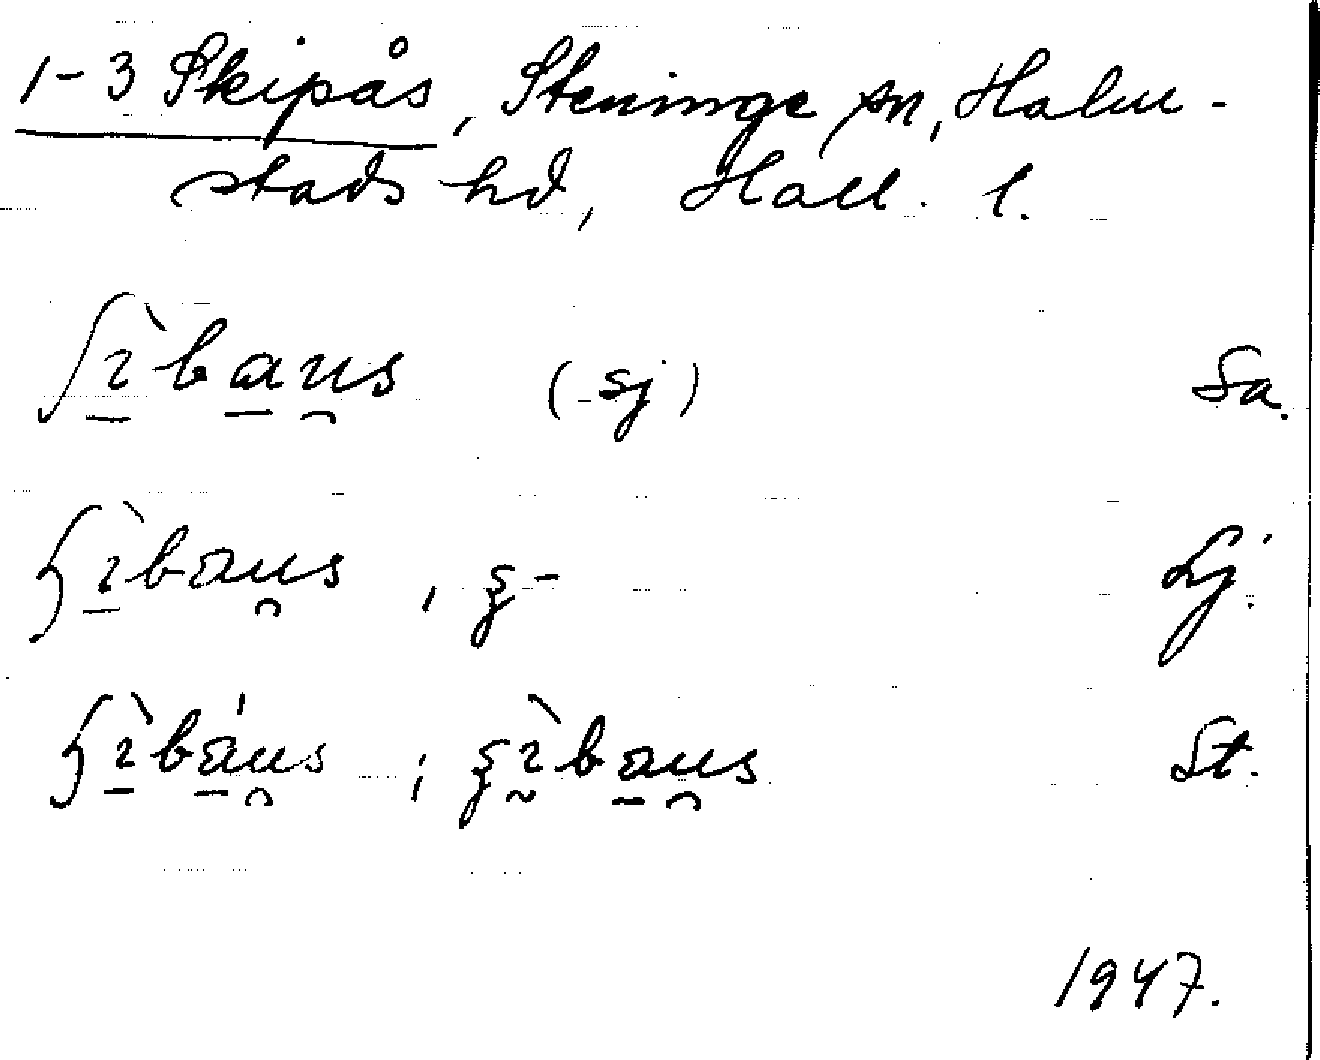 1-3 Skipås, Steninge sn, Halm-
stads hd, Hall. l.
ʃɩ̠̀ba̠u̯s (sj) Sa.
ɧɩ̠̀bau̯s, ʂ- Lj.
ɧɩ̠̀bá̠u̯s; ʂɩ̰̀ba̠u̯s St.
1947.